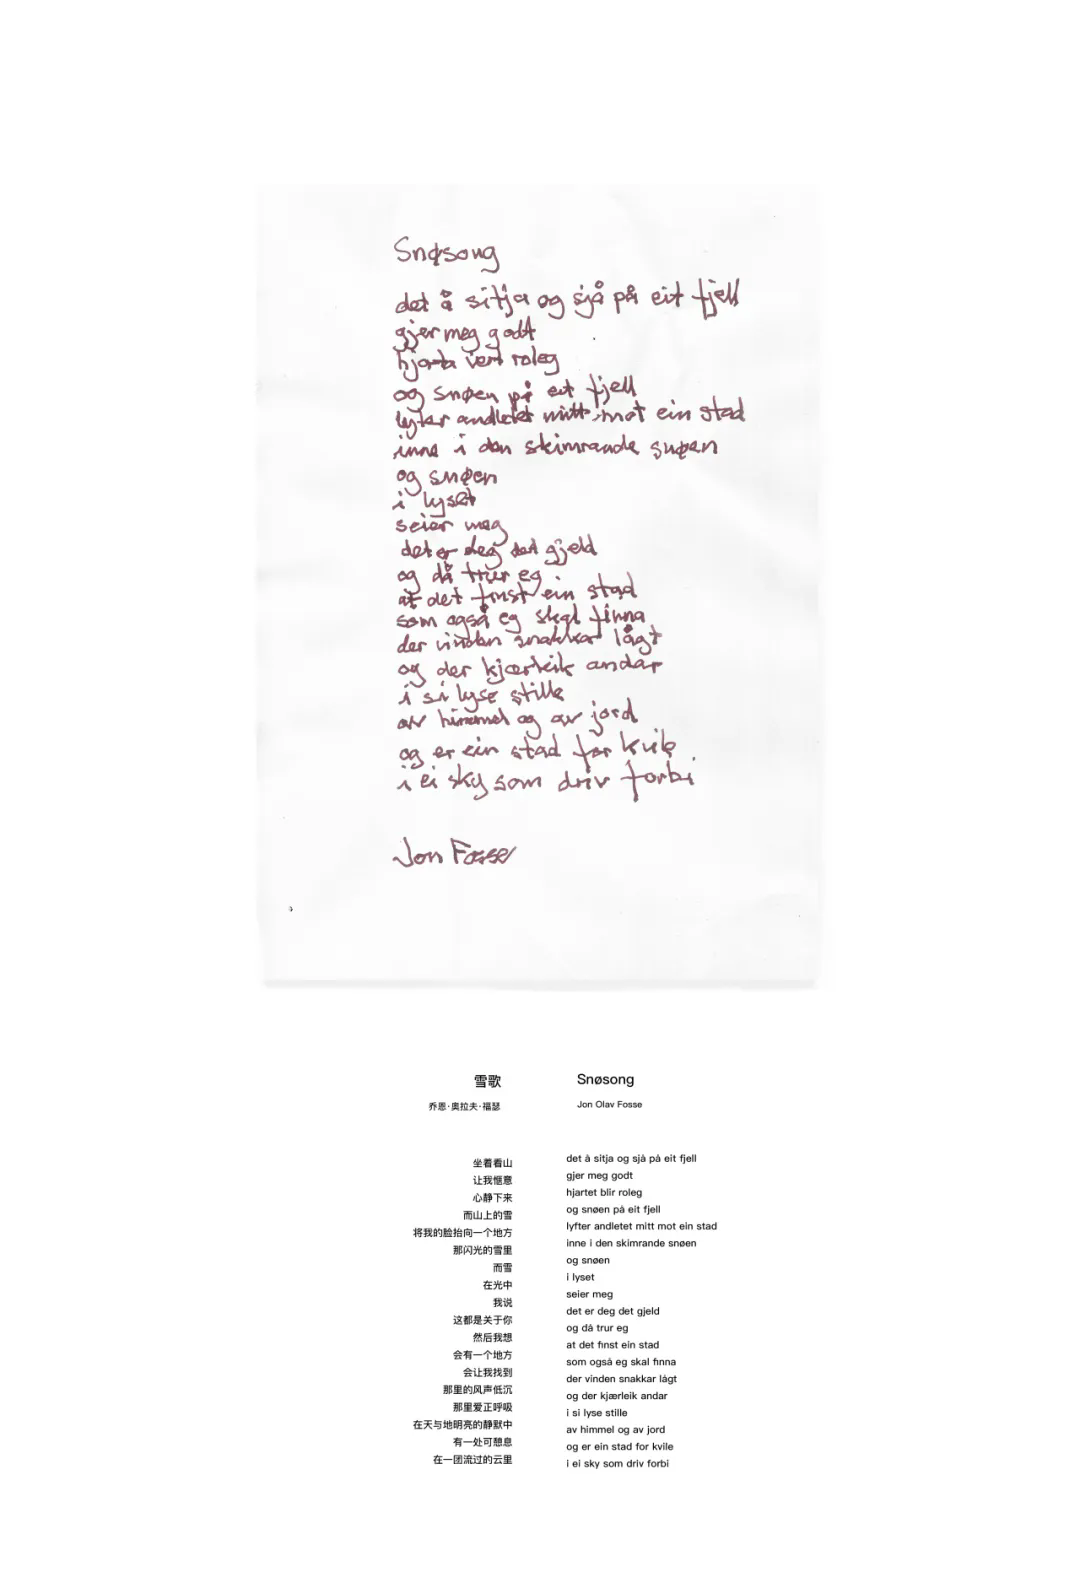 Snøsong
det å sitja og sjå på eit fjell
gjer meg godt
hjarta vert roleg
og snøen på eit fjell
lyfter andletet mitt mot ein stad
inne i den skimrande snøen
og snøen
i lyset
seier meg
det er deg det gjeld
og då trur eg
at det finst ein stad
som også eg skal finna
der vinden snakkar lågt
og der kjærleik andar
i si lyse stille
av himmel og av jord
og er ein stad for kvile
i ei sky som driv forbi
Jon Fosse
雪歌
乔恩·奥拉夫·福瑟
坐着看山
让我惬意
心静下来
而山上的雪
将我的脸抬向一个地方
那闪光的雪里
而雪
在光中
我说
这都是关于你
然后我想
会有一个地方
会让我找到
那里的风声低沉
那里爱正呼吸
在天与地明亮的静默中
有一处可憩息
在一团流过的云里
Snøsong
Jon Olav Fosse
det å sitja og sjå på eit fjell
gjer meg godt
hjartet blir roleg
og snøen på eit fjell
lyfter andletet mitt mot ein stad
inne i den skimrande snøen
og snøen
i lyset
seier meg
det er deg det gjeld
og då trur eg
at det finst ein stad
som også eg skal finna
der vinden snakkar lågt
og der kjærleik andar
i si lyse stille
av himmel og av jord
og er ein stad for kvile
i ei sky som driv forbi